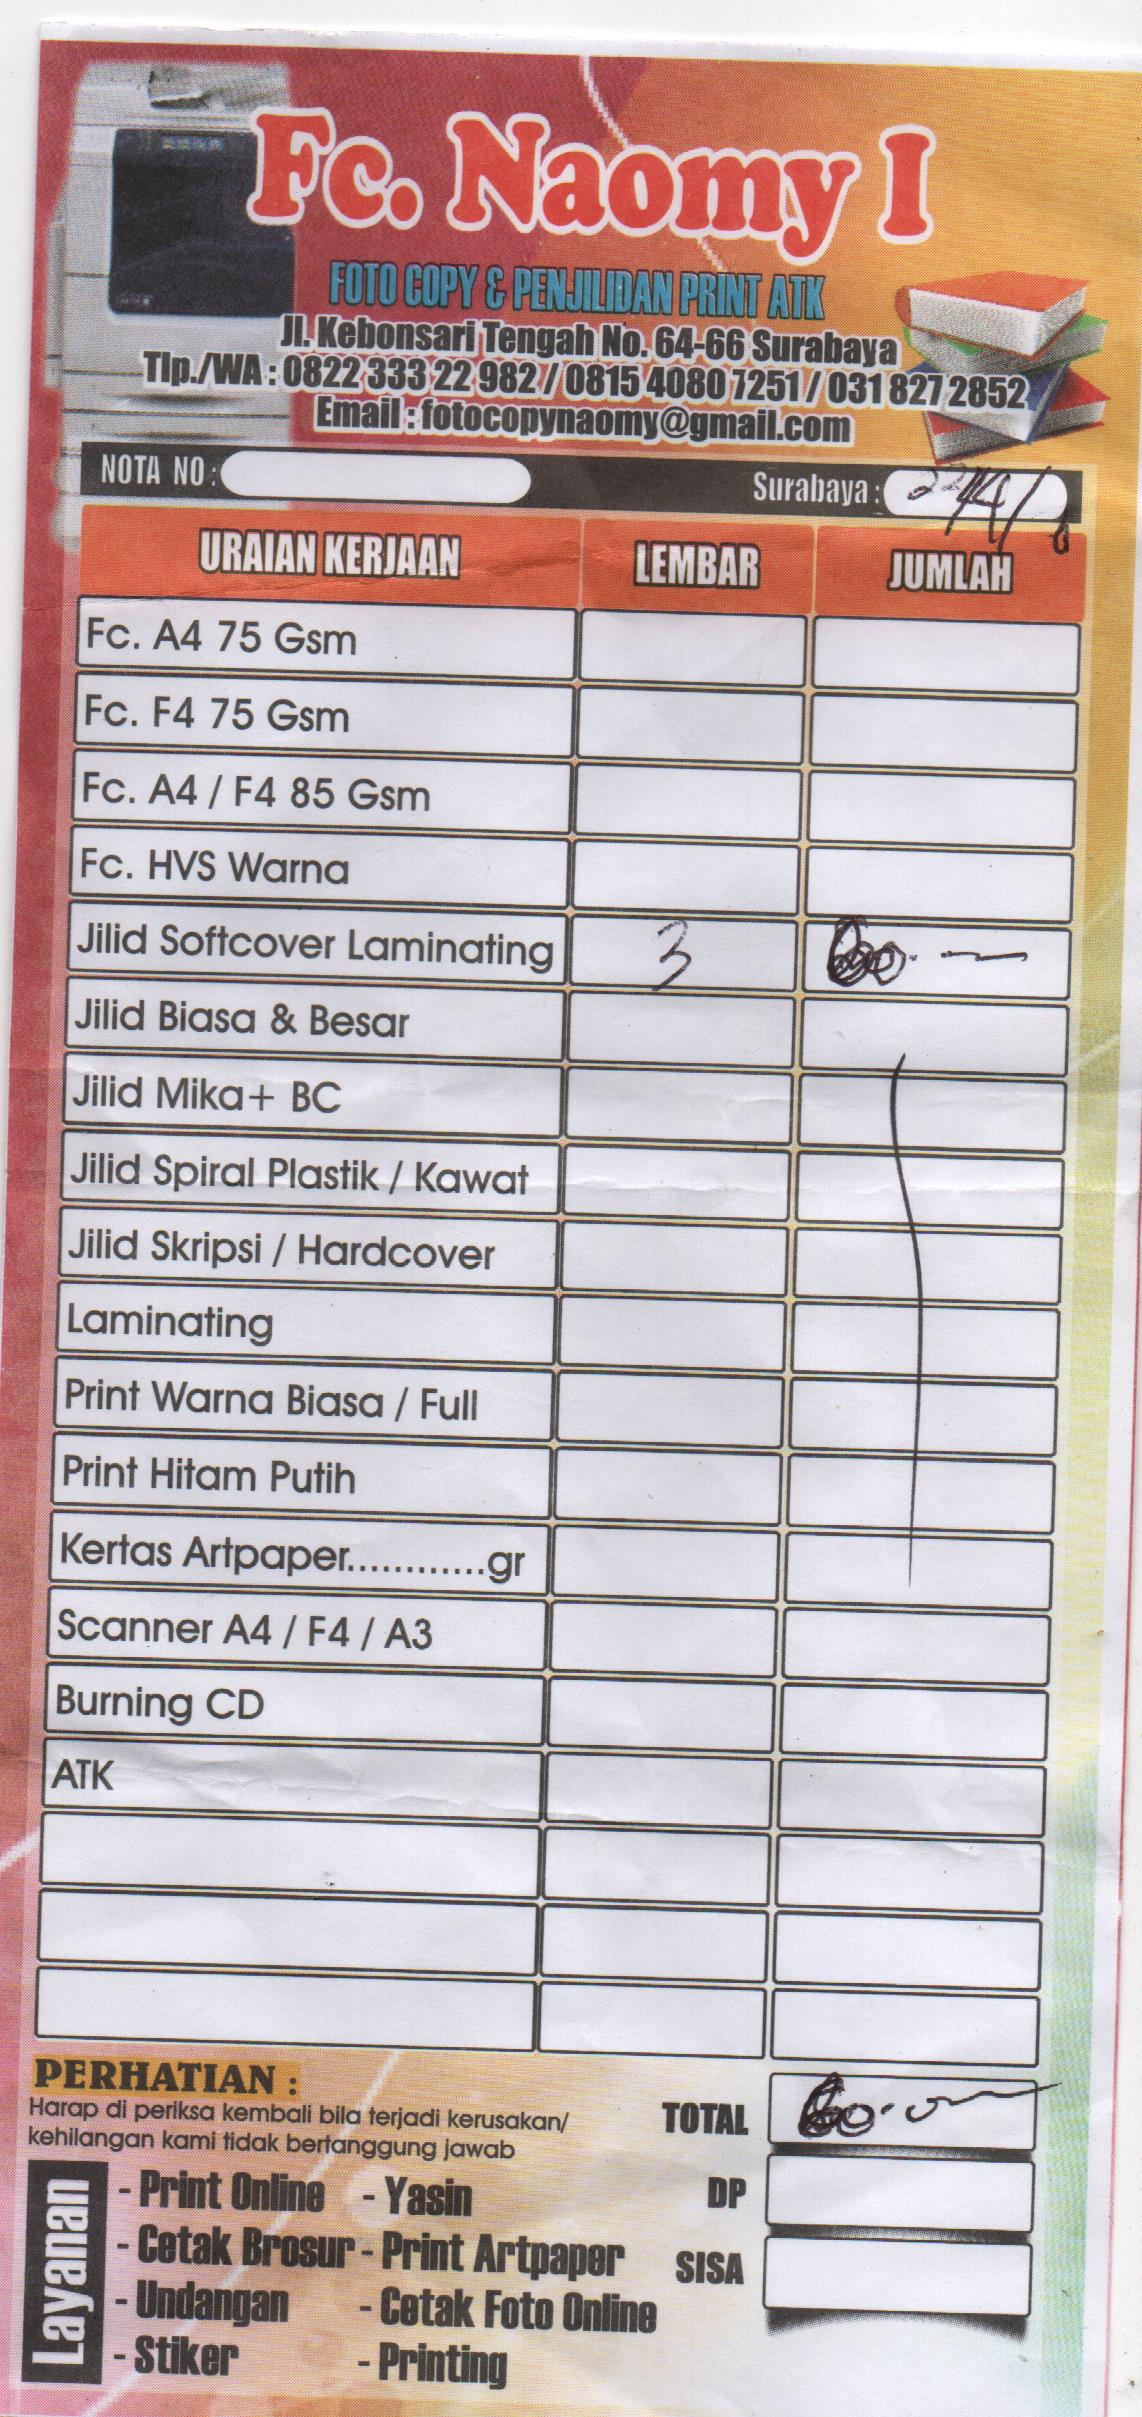 Fc. Naomy I
FOTO COPY & PENJILIDAN PRINT ATK
Jl. Kebonsari Tengah No. 64-66 Surabaya
Tlp./WA : 0822 333 22 982 / 0815 4080 7251 / 031 827 2852
Email : fotocopynaomy@gmail.com
NOTA NO : Surabaya : 22/4/
URAIAN KERJAAN LEMBAR JUMLAH
Fc. A4 75 Gsm
Fc. F4 75 Gsm
Fc. A4 / F4 85 Gsm
Fc. HVS Warna
Jilid Softcover Laminating 3 60.—
Jilid Biasa & Besar
Jilid Mika+ BC
Jilid Spiral Plastik / Kawat
Jilid Skripsi / Hardcover
Laminating
Print Warna Biasa / Full
Print Hitam Putih
Kertas Artpaper............gr
Scanner A4 / F4 / A3
Burning CD
ATK
PERHATIAN :
Harap di periksa kembali bila terjadi kerusakan/
kehilangan kami tidak bertanggung jawab
TOTAL 60.
DP
SISA
Layanan
- Print Online - Yasin
- Cetak Brosur - Print Artpaper
- Undangan - Cetak Foto Online
- Stiker - Printing